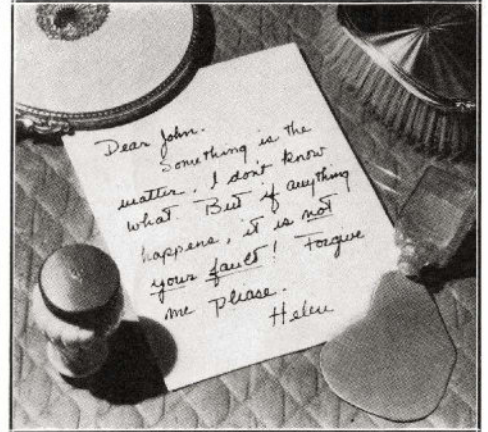 Dear John.
Something is the
matter. I don't know
what. But if anything
happens, it is not
your fault! Forgive
me please.
Helen